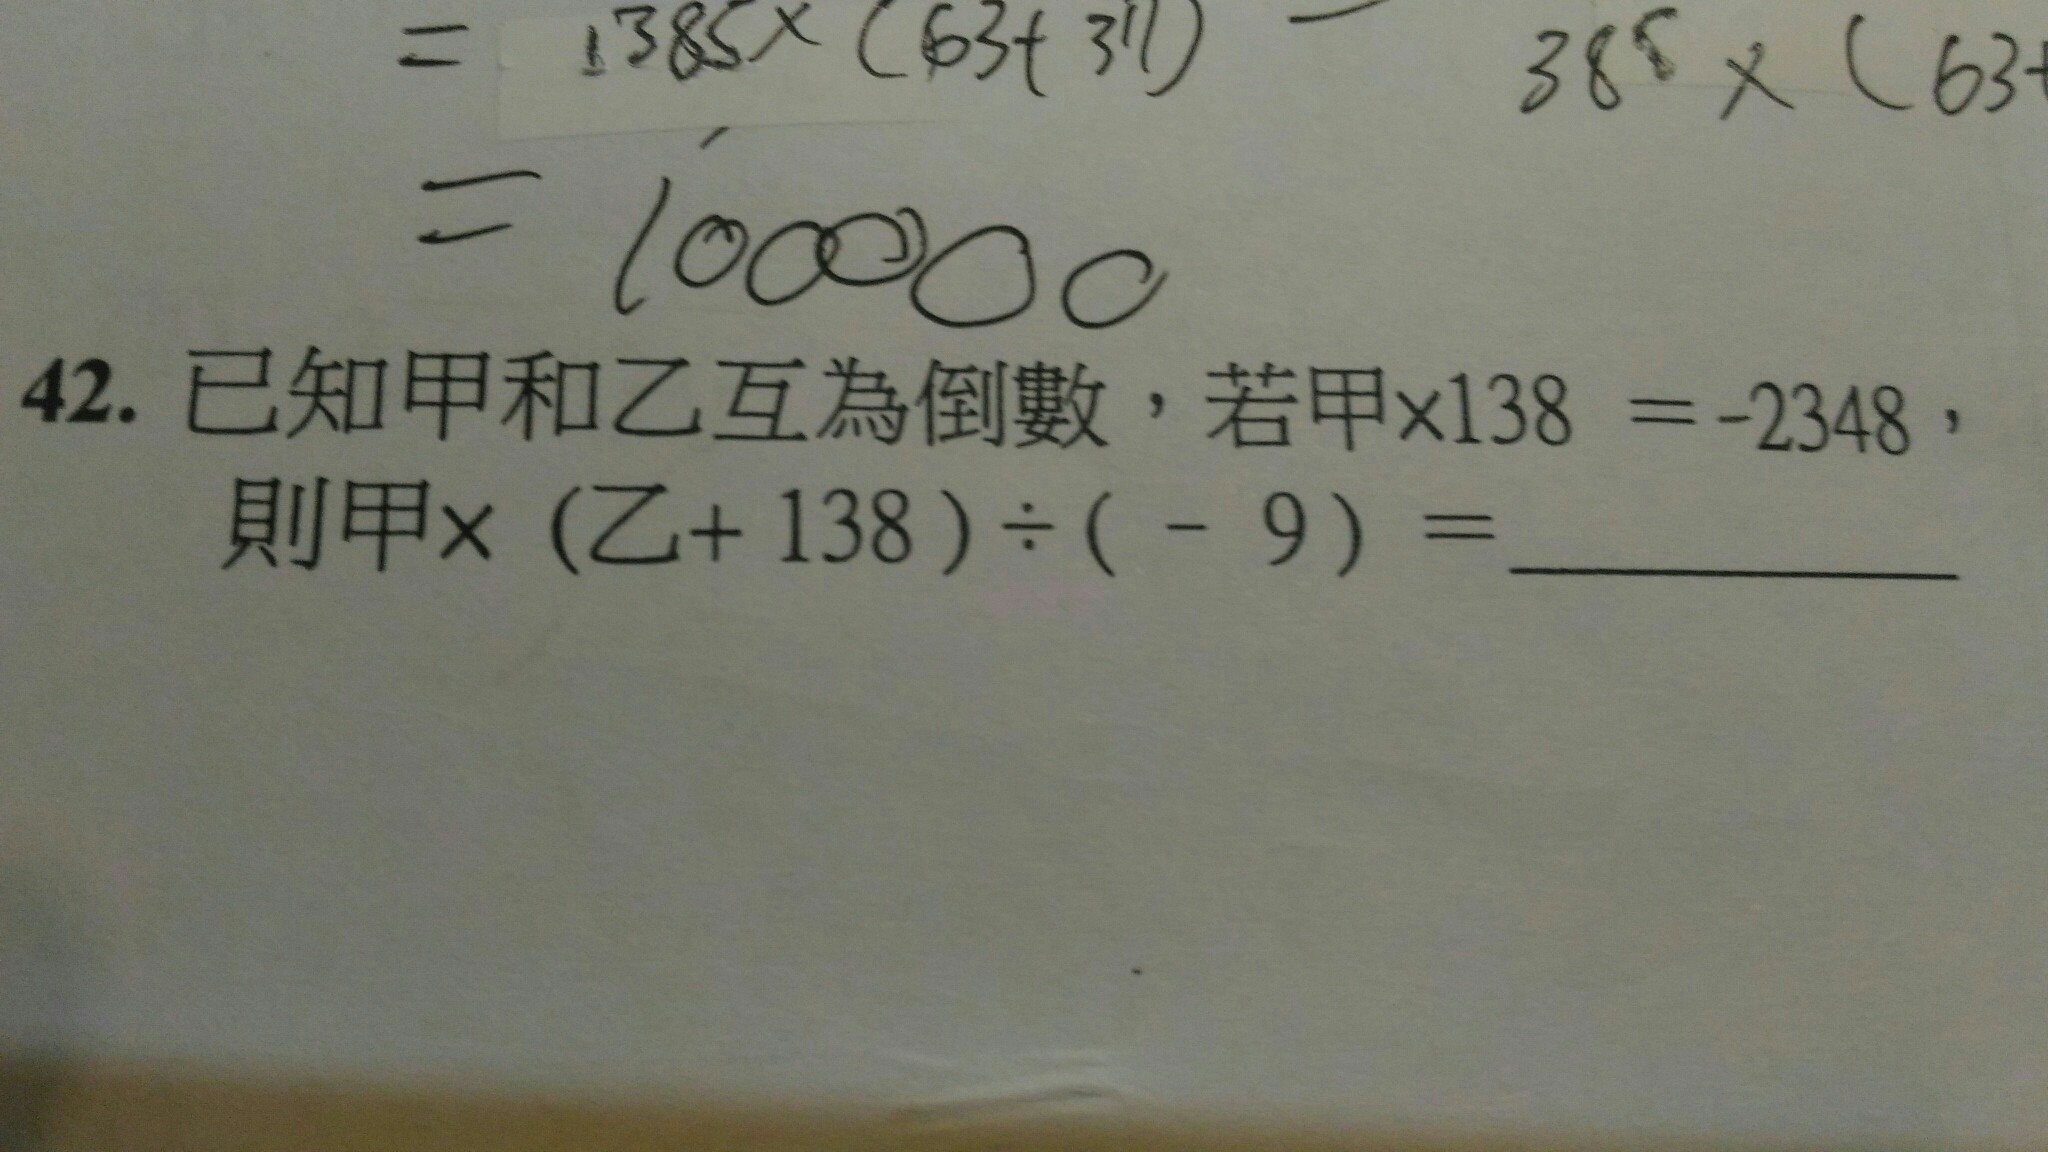 = 1385×(63+37)
385×(63+
=100000
42. 已知甲和乙互為倒數，若甲×138 =-2348，
則甲×(乙+138)÷(-9)=